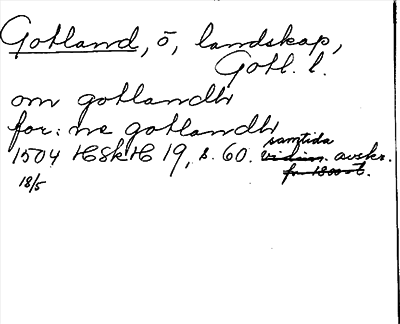 Gotland, ö, landskap,
Gotl. l.
om gotlandh
for: ne gotlandh
samtida
1504 HSkH 19, s. 60. vidim. avskr.
fr 1800-t.
18/5